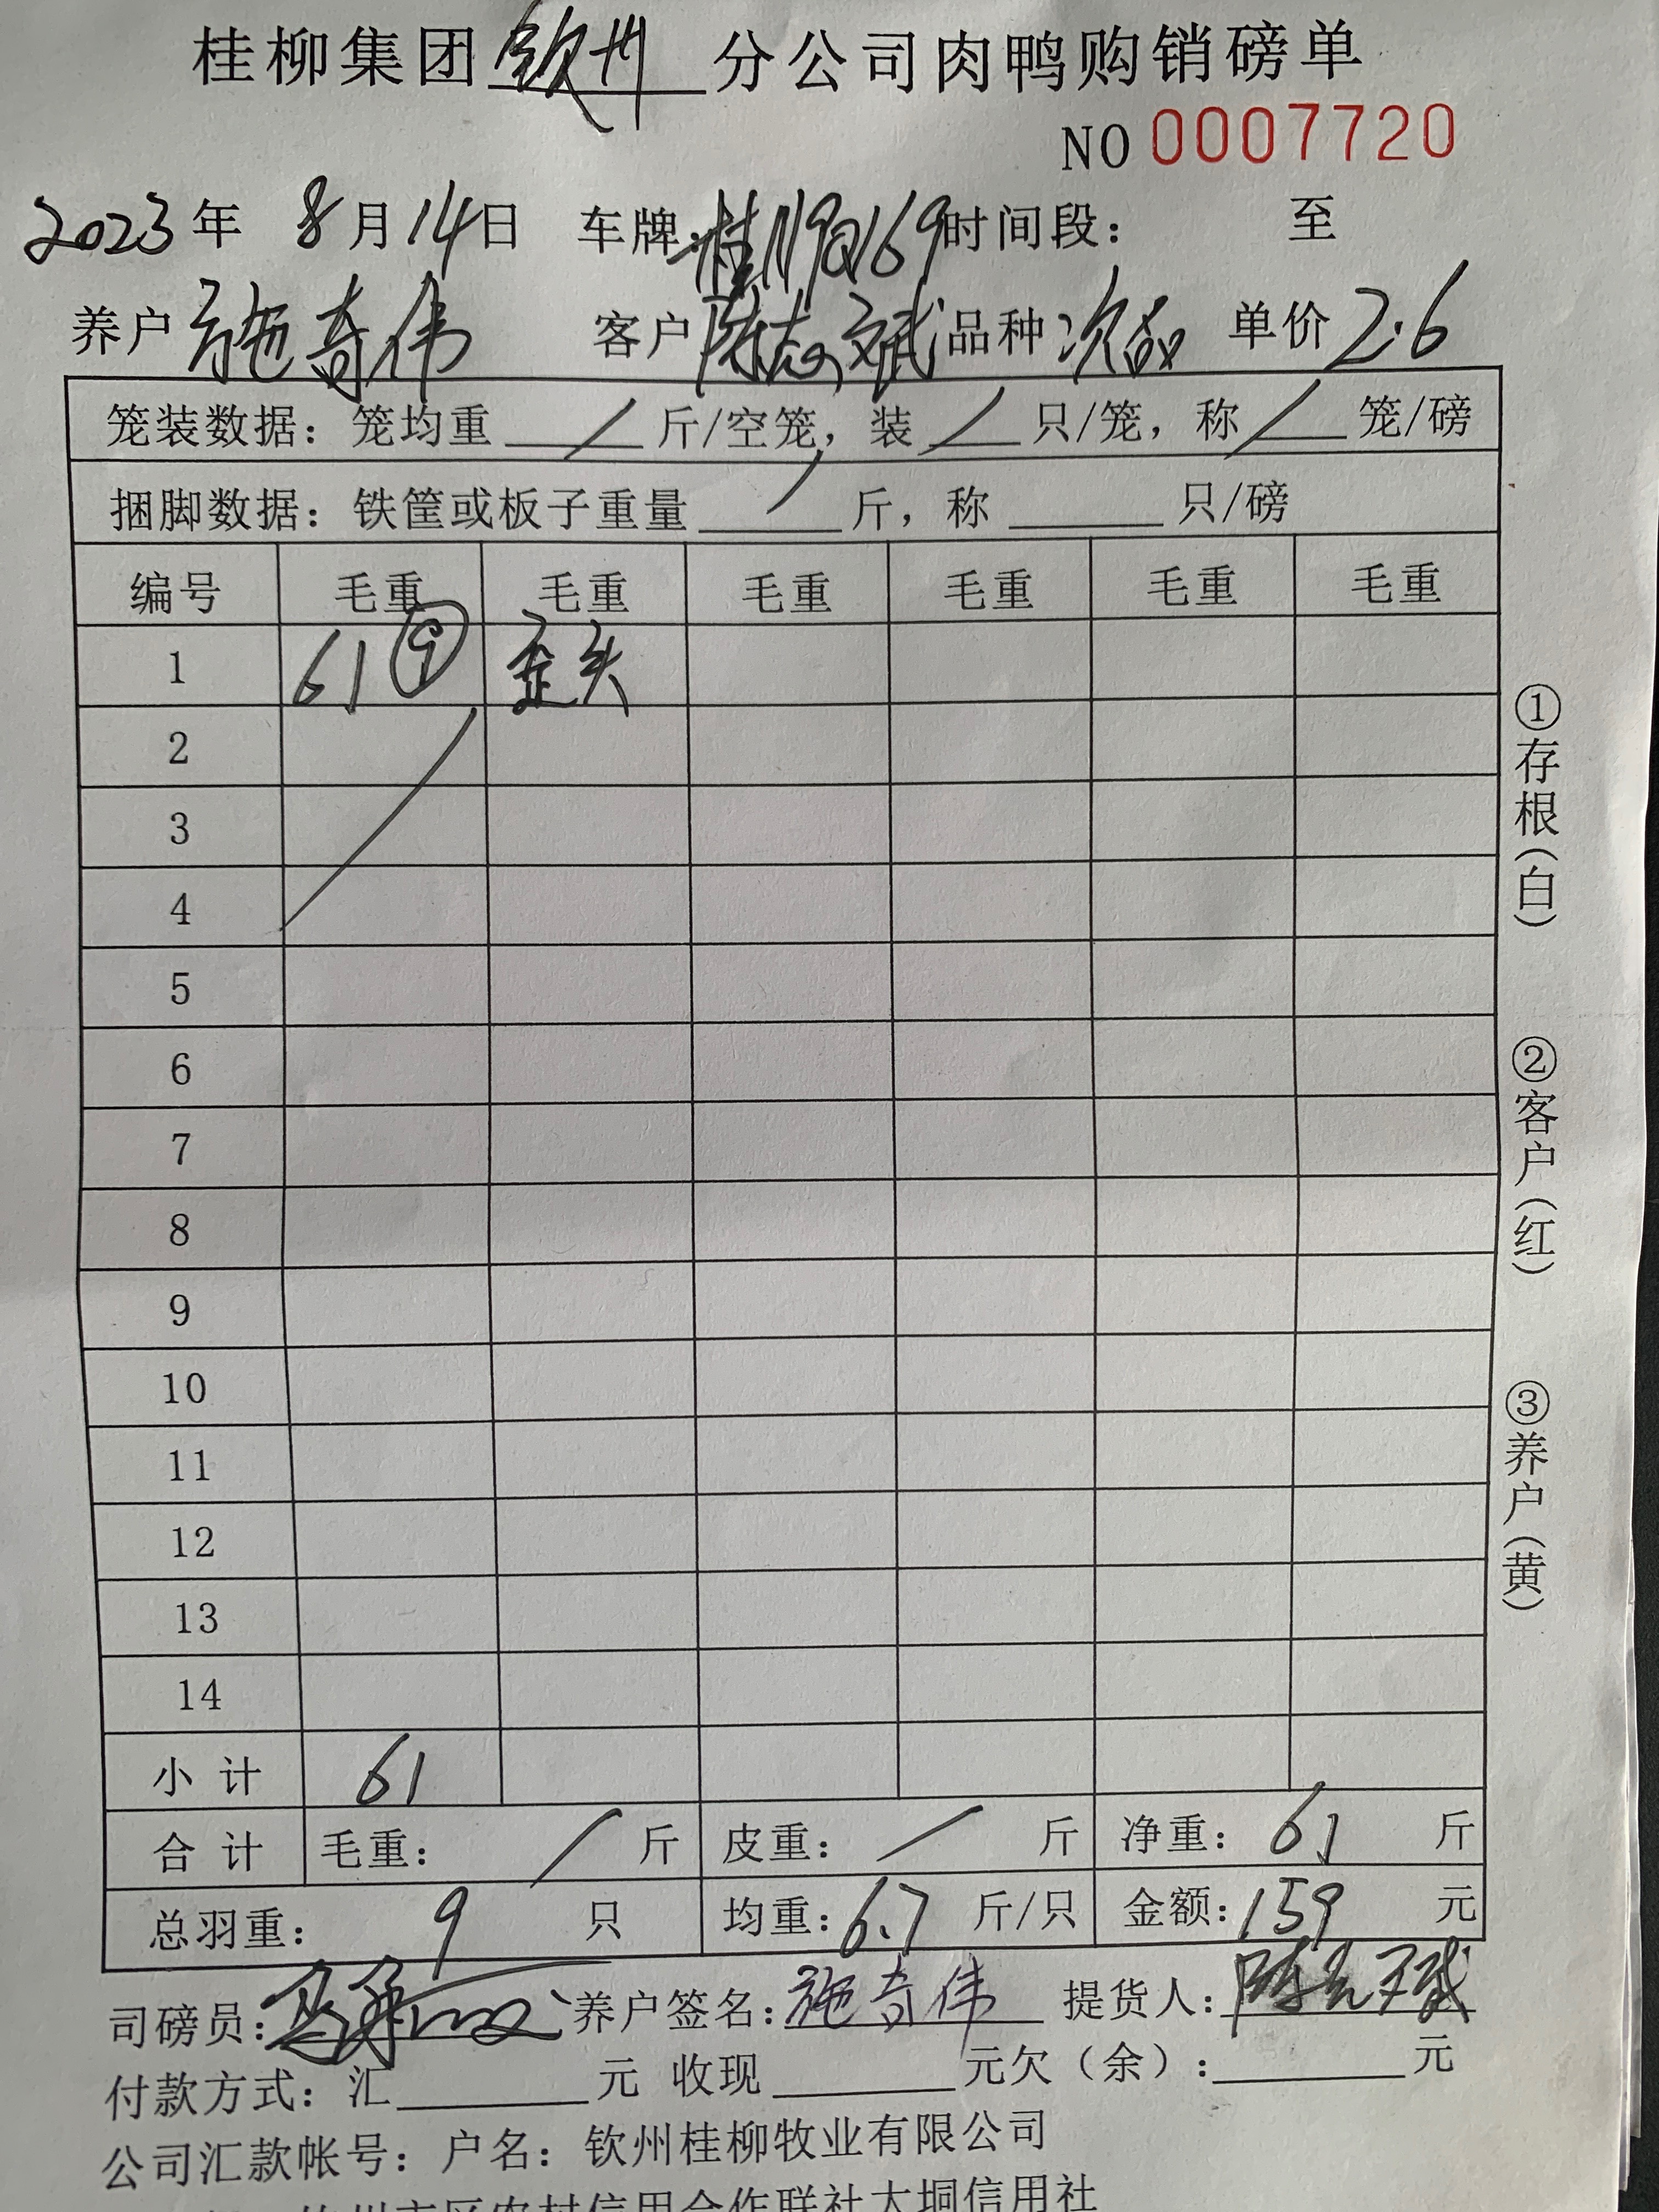 桂柳集团钦州分公司肉鸭购销磅单
NO 0007720
2023年 8月14日 车牌:桂N9Q169 时间段: 至
养户 施奇伟 客户 陈志斌 品种 次品 单价 2.6
笼装数据: 笼均重 / 斤/空笼, 装 / 只/笼, 称 / 笼/磅
捆脚数据: 铁筐或板子重量 / 斤, 称 只/磅
编号 毛重 毛重 毛重 毛重 毛重 毛重
1 61 ⑨ 歪头
2
3
4
5
6
7
8
9
10
11
12
13
14
小计 61
合计 毛重: / 斤 皮重: / 斤 净重: 61 斤
总羽重: 9 只 均重: 6.7 斤/只 金额: 159 元
司磅员: 养户签名: 施奇伟 提货人:
付款方式: 汇 元 收现 元欠(余): 元
公司汇款帐号: 户名: 钦州桂柳牧业有限公司
钦州市区农村信用合作联社大垌信用社
①存根(白)
②客户(红)
③养户(黄)